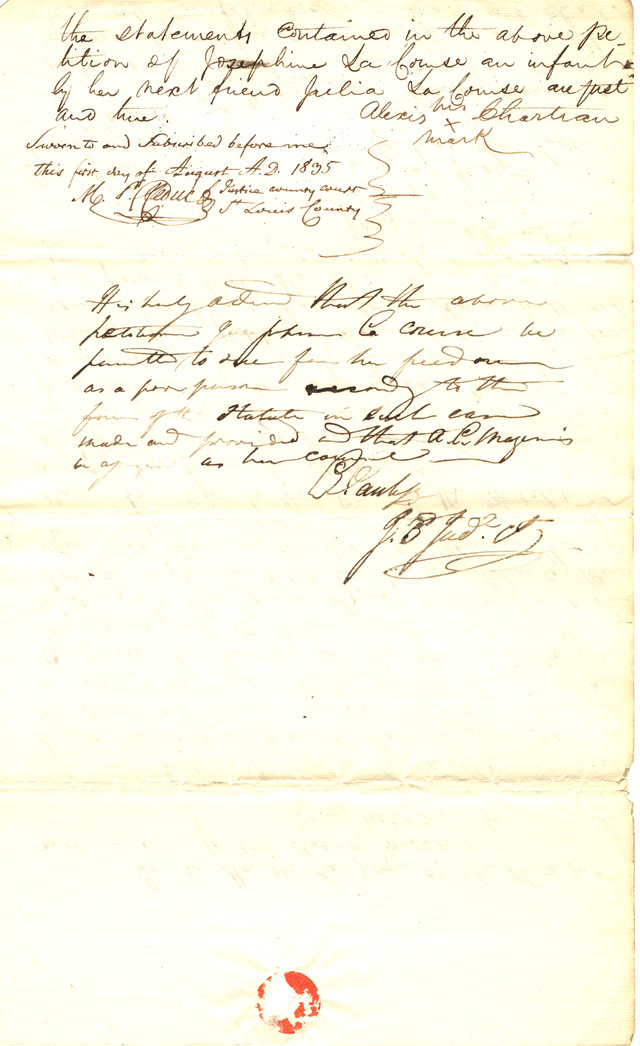 the statements contained in the above pe-
tition of Josephine La Course an infant
by her next friend Julia La Course are just
and true. Alexis his Chartran
x
mark
Sworn to and Subscribed before me,
this first day of August A.D. 1835
M. P. Leduc Justice county court
St Louis County
It is hereby ordered that the above
petitioner Josephine La course be
permitted to sue for her freedom
as a poor person according to the
form of the Statute in such case
made and provided and that A. L. Magenis
be assigned as her counsel